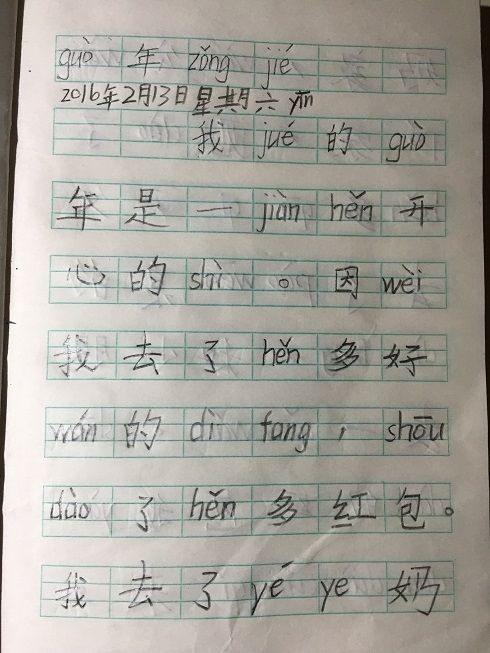 guò 年 zǒng jié
2016年2月13日 星期六 yīn
我 jué 的 guò
年 是 一 jiàn hěn 开
心 的 shì 。 因 wèi
我 去 了 hěn 多 好
wán 的 dì fang ， shōu
dào 了 hěn 多 红 包。
我 去 了 yé ye 奶